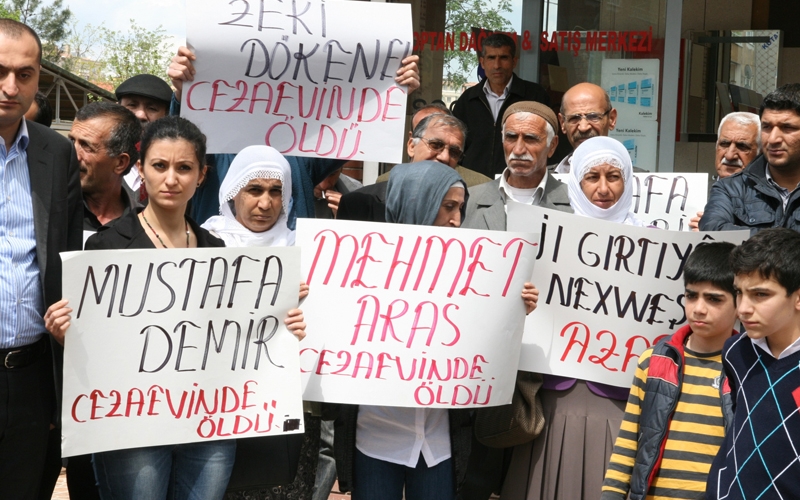 ZEKİ
DÖKENEL
CEZAEVİNDE
ÖLDÜ.
OPTAN DAĞITIM & SATIŞ MERKEZİ
Yeni Kalekim
MUSTAFA
DEMİR
CEZAEVİNDE
ÖLDÜ.
MEHMET
ARAS
CEZAEVİNDE
ÖLDÜ
Jİ GIRTIYÊ
NEXWEŞ
AZA
FA